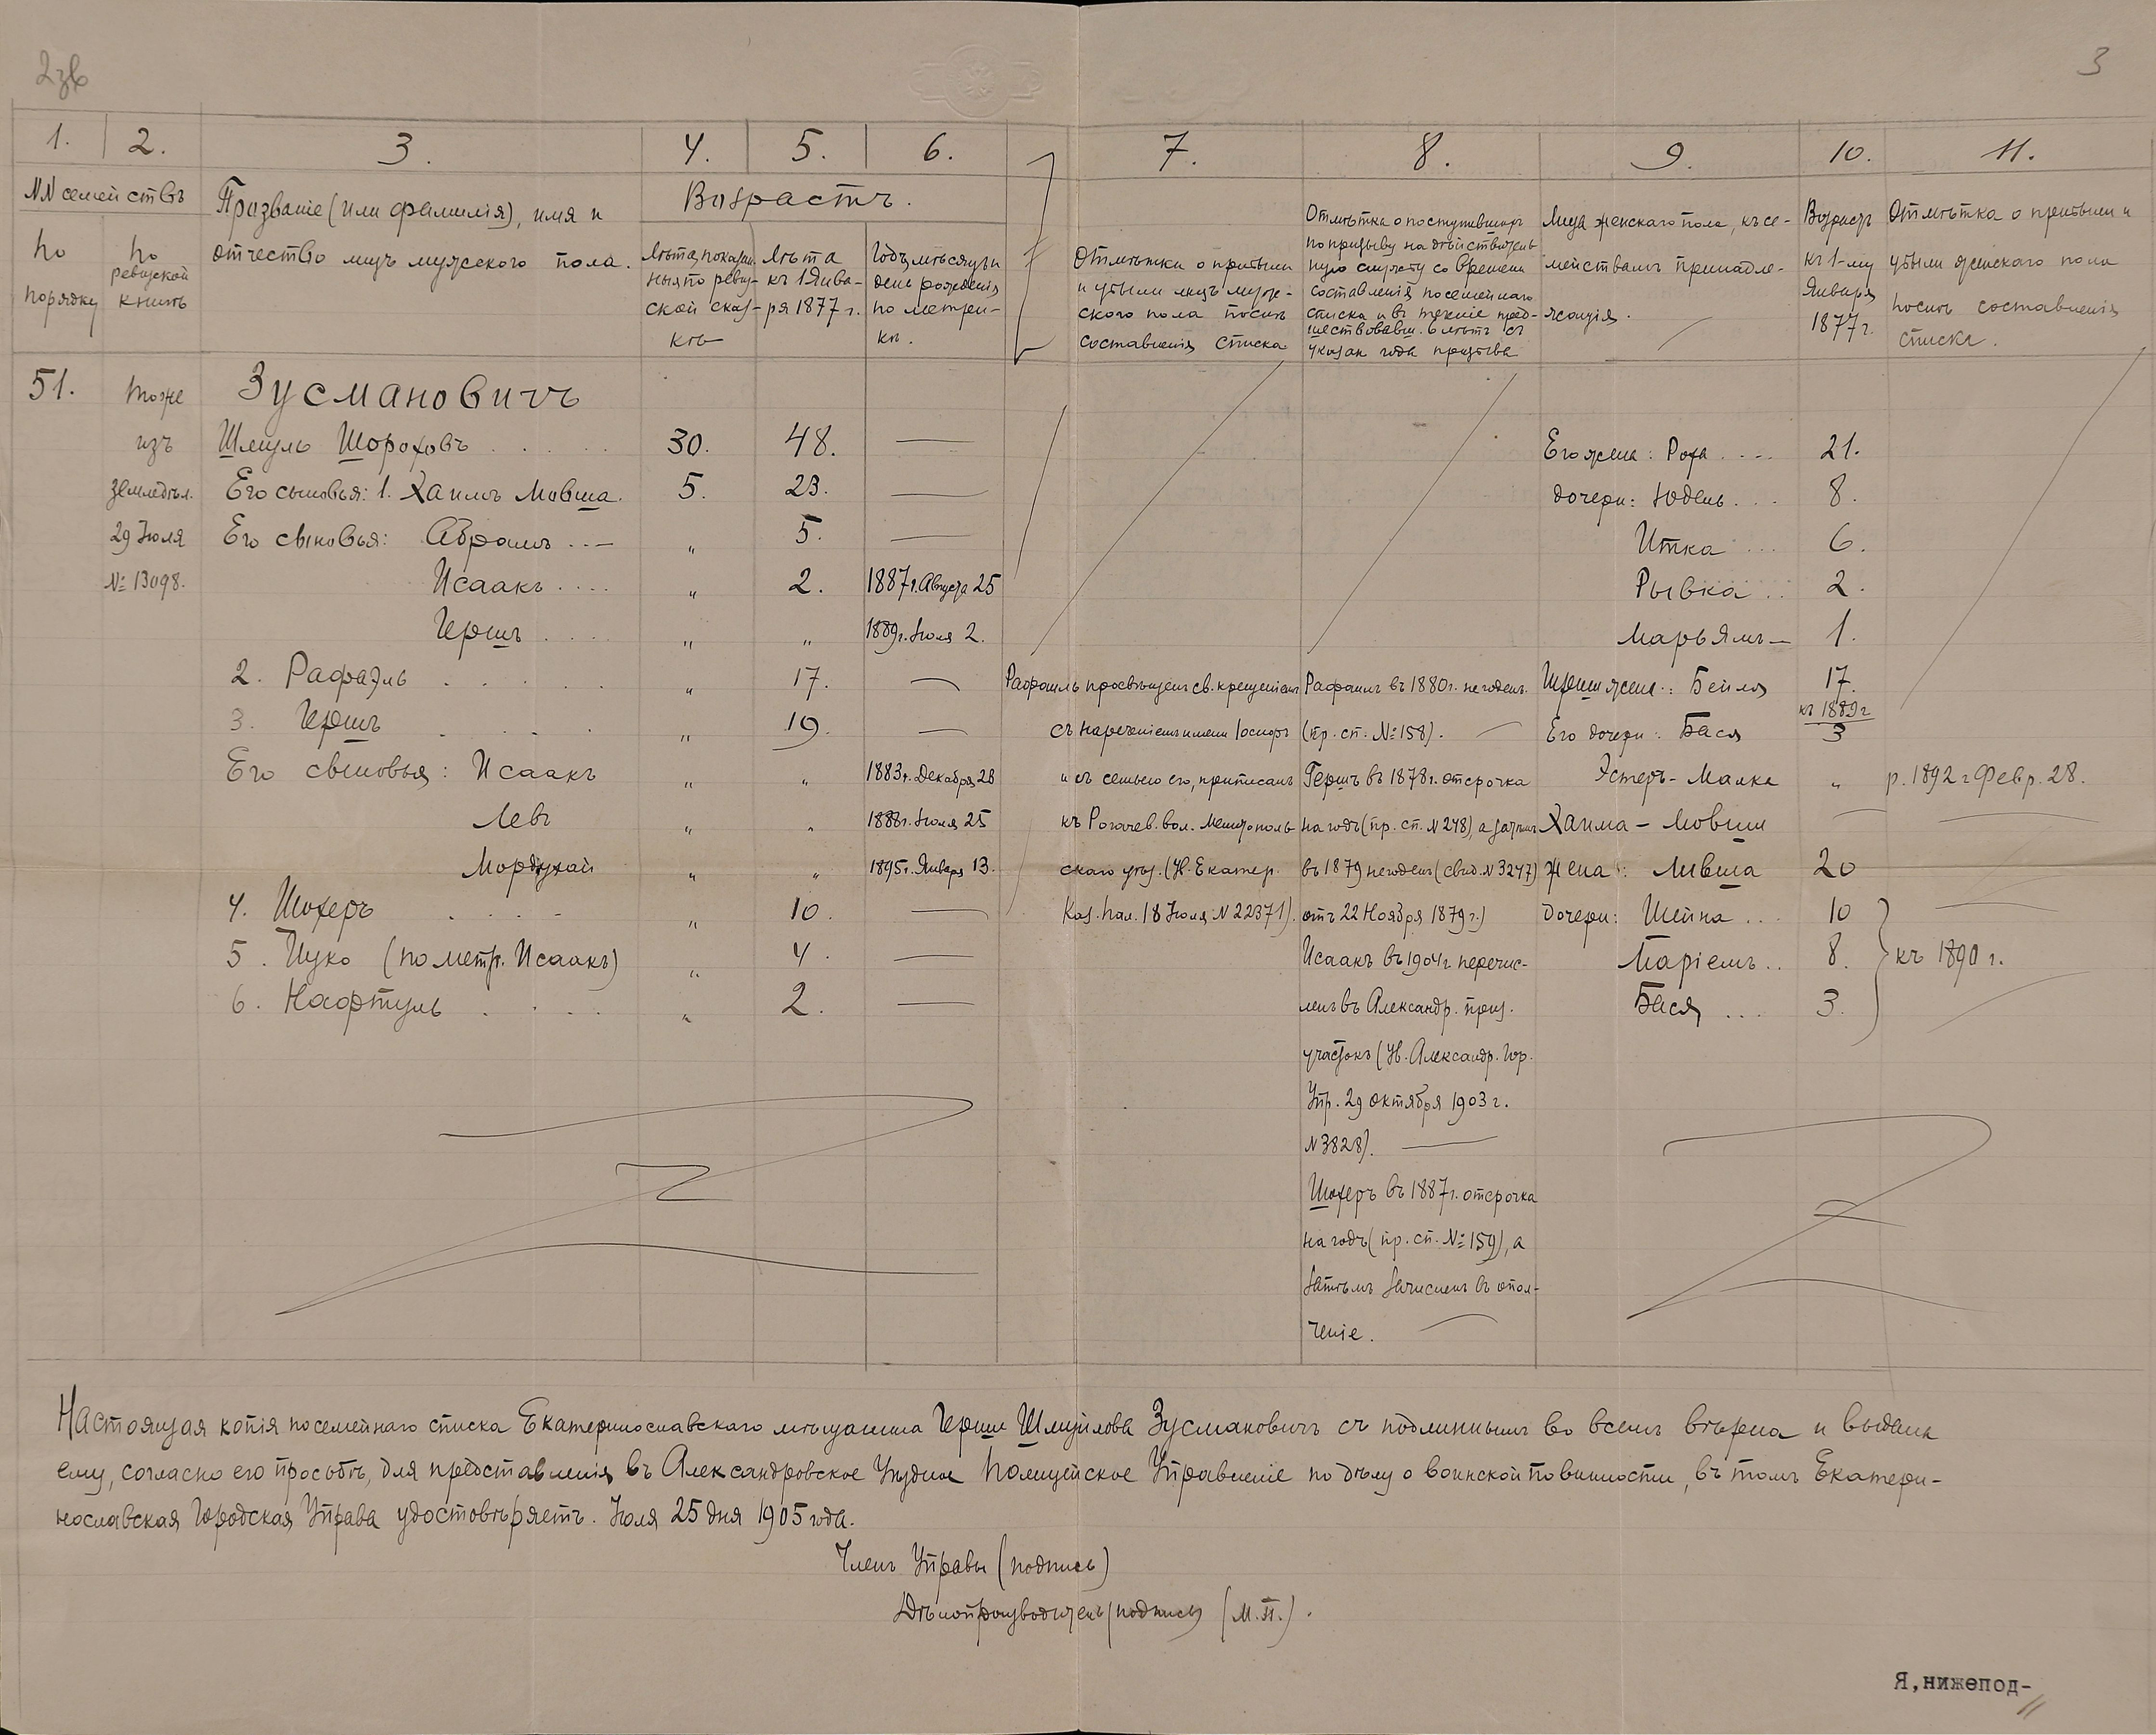 2зв
3
1. 2. 3. 4. 5. 6. 7. 8. 9. 10. 11.
NN семействъ
по порядку
по ревизской книгѣ
Прозваніе (или фамилія), имя и
отчество лицъ мужского пола.
Возрастъ.
Лѣта, показан-
ныя по ревиз-
ской сказ-
кѣ
Лѣта
къ 1 Янва-
ря 1877 г.
Годъ, мѣсяцъ и
день рожденія
по метри-
кѣ.
Отмѣтки о прибыли
и убыли лицъ муж-
ского пола послѣ
составленія списка
Отмѣтка о поступившихъ
по призыву на дѣйствитель
ную службу со времени
составленія посемейнаго
списка и въ теченіе пред-
шествовавш. 6 лѣтъ съ
указан. года призыва
Лица женскаго пола, къ се-
мействамъ принадле-
жащія.
Возрастъ
къ 1-му
Января
1877 г.
Отмѣтка о прибыли и
убыли женскаго пола
послѣ составленія
списка.
51. тоже Зусмановичъ
изъ Шмуль Шороховъ 30. 48. — Его жена: Роха 21.
земледѣл. Его сыновья: 1. Хаимъ Мовша. 5. 23. — дочери: Юдель 8.
29 Іюля Его сыновья: Абрамъ " 5. — Итка 6.
№ 13098. Исаакъ " 2. 1887 г. Августа 25 Рывка 2.
Гершъ " " 1889 г. Іюля 2. Марьямъ 1.
2. Рафаэль " 17. — Рафаилъ просвѣщенъ св. крещеніемъ Рафаилъ въ 1880 г. негоденъ. Герша жена: Бейля 17.
къ 1889 г
3. Гершъ " 19. — съ нареченіемъ имени Іосифъ (пр. сп. № 158). — Его дочери: Бася 3
Его сыновья: Исаакъ " " 1883 г. Декабря 28 и съ семьею его, приписанъ Гершъ въ 1878 г. отсрочка Эстеръ-Малка " р. 1892 г Февр. 28.
Левъ " " 1888 г. Іюля 25 къ Рогачев. вол. Мелитополь на годъ (пр. сп. N 248), а затѣмъ Хаима-Мовши —
Мордухай " " 1895 г. Января 13. скаго уѣз. (У. Екатер. въ 1879 негоденъ (свид. N 3247) жена: Лившa 20
4. Шохеръ " 10. — Каз. Пал. 18 Іюля N 22371). отъ 22 Ноября 1879 г.) дочери: Шейна 10 —
5. Ицко (по метр. Исаакъ) " 4. — Исаакъ въ 1904 г перечис- Маріемъ 8. къ 1890 г.
6. Нафтуль " 2. — ленъ въ Александр. приз. Бася 3.
участокъ (Ув. Александр. Гор.
Упр. 29 октября 1903 г.
N 3828). —
Шохеръ въ 1887 г. отсрочка
на годъ (пр. сп. № 159), а
затѣмъ зачисленъ въ опол-
ченіе.
Настоящая копія посемейнаго списка Екатеринославскаго мѣщанина Герша Шмуйлова Зусмановичъ съ подлиннымъ во всемъ вѣрна и выдана
ему, согласно его просьбѣ, для представленія въ Александровское Уѣздное Полицейское Управленіе по дѣлу о воинской повинности, въ томъ Екатери-
нославская Городская Управа удостовѣряетъ. Іюля 25 дня 1905 года.
Членъ Управы (подпись)
Дѣлопроизводитель (подпись) (М.П.).
Я,нижепод-